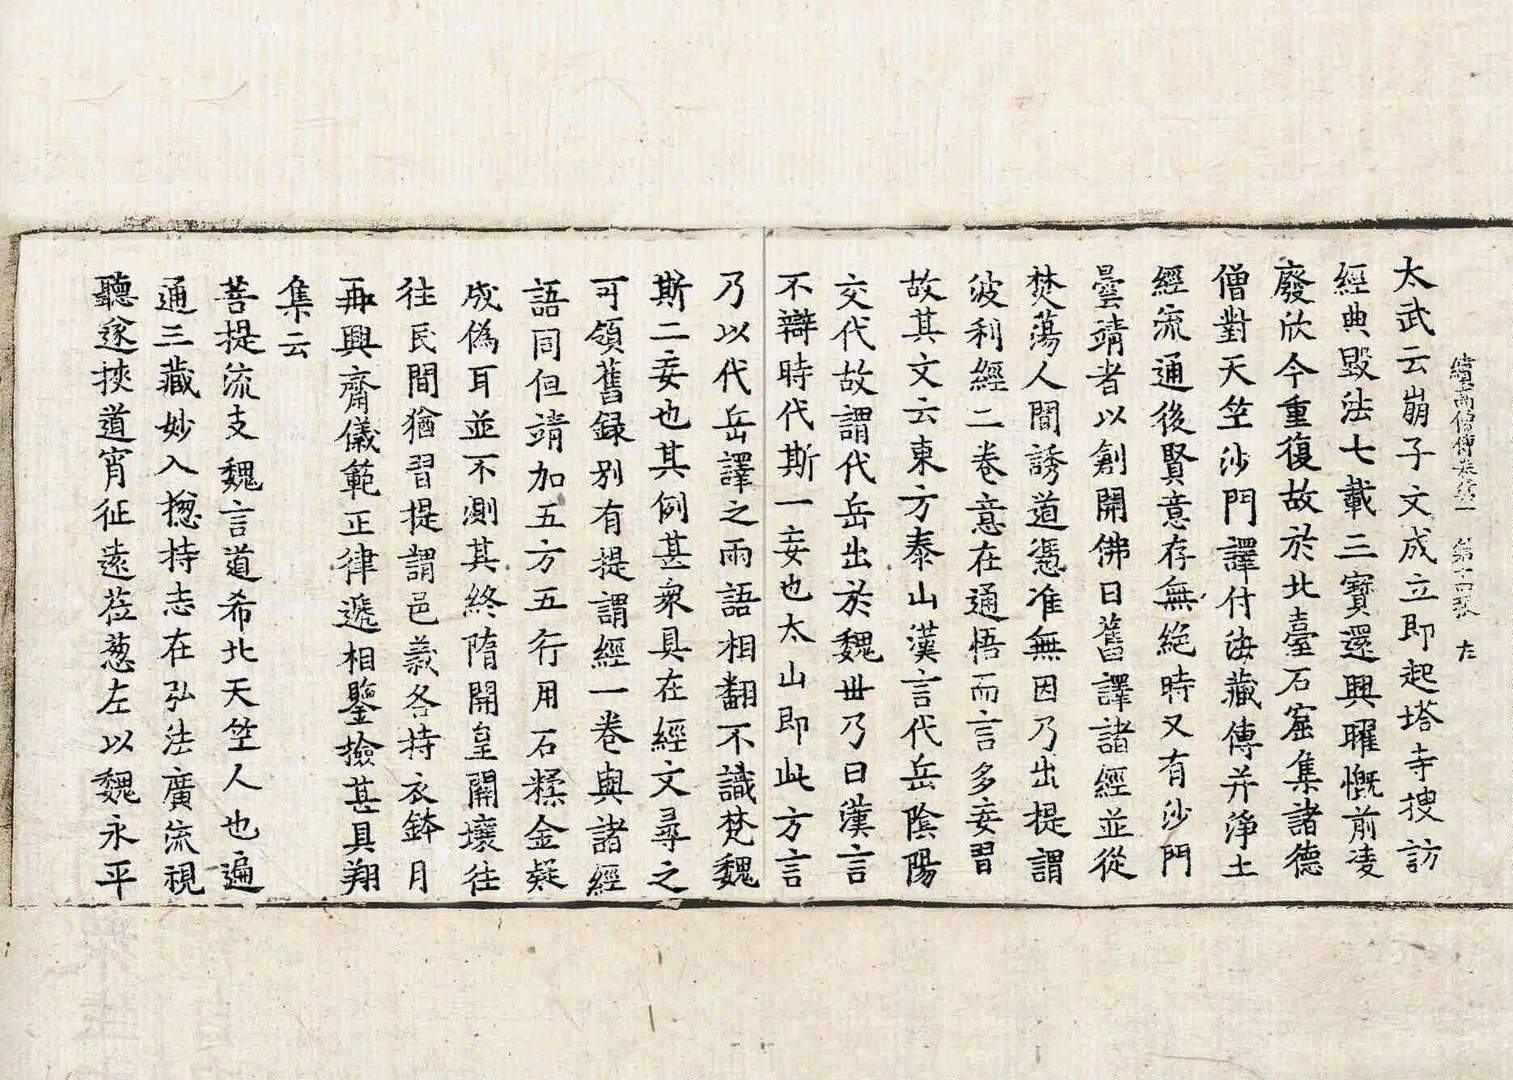 續高僧傳卷第一 第十四張 左
太武云崩子文成立即起塔寺搜訪
經典毀法七載三寶還興曜慨前凌
廢欣今重復故於北臺石窟集諸德
僧對天竺沙門譯付法藏傳并淨土
經流通後賢意存無絕時又有沙門
曇靖者以創開佛日舊譯諸經並從
焚蕩人間誘道憑准無因乃出提謂
波利經二卷意在通悟而言多妄習
故其文云東方泰山漢言代岳陰陽
交代故謂代岳出於魏世乃曰漢言
不辯時代斯一妄也太山即此方言
乃以代岳譯之兩語相翻不識梵魏
斯二妄也其例甚衆具在經文尋之
可領舊録別有提謂經一卷與諸經
語同但靖加五方五行用石糅金疑
成僞耳並不測其終隋開皇關壤往
往民間猶習提謂邑義各持衣鉢月
再興齋儀範正律遞相鑒撿甚具翔
集云
菩提流支魏言道希北天竺人也遍
通三藏妙入揔持志在弘法廣流視
聽遂挾道宵征遠莅葱左以魏永平